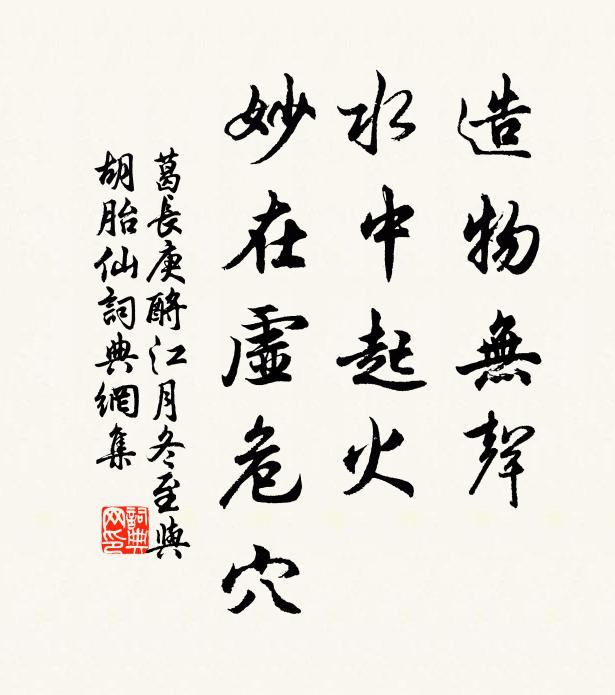 造物無聲
水中起火
妙在虛危穴
葛長庚酹江月冬至與
胡胎仙詞典網集
詞典
网印